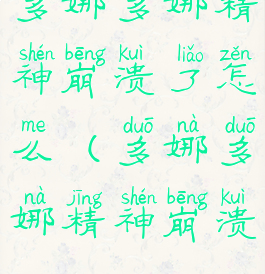 多娜多娜精
shén bēng kuì liǎo zěn
神崩溃了怎
me duō nà duō
么（多娜多
nà jīng shén bēng kuì
娜精神崩溃